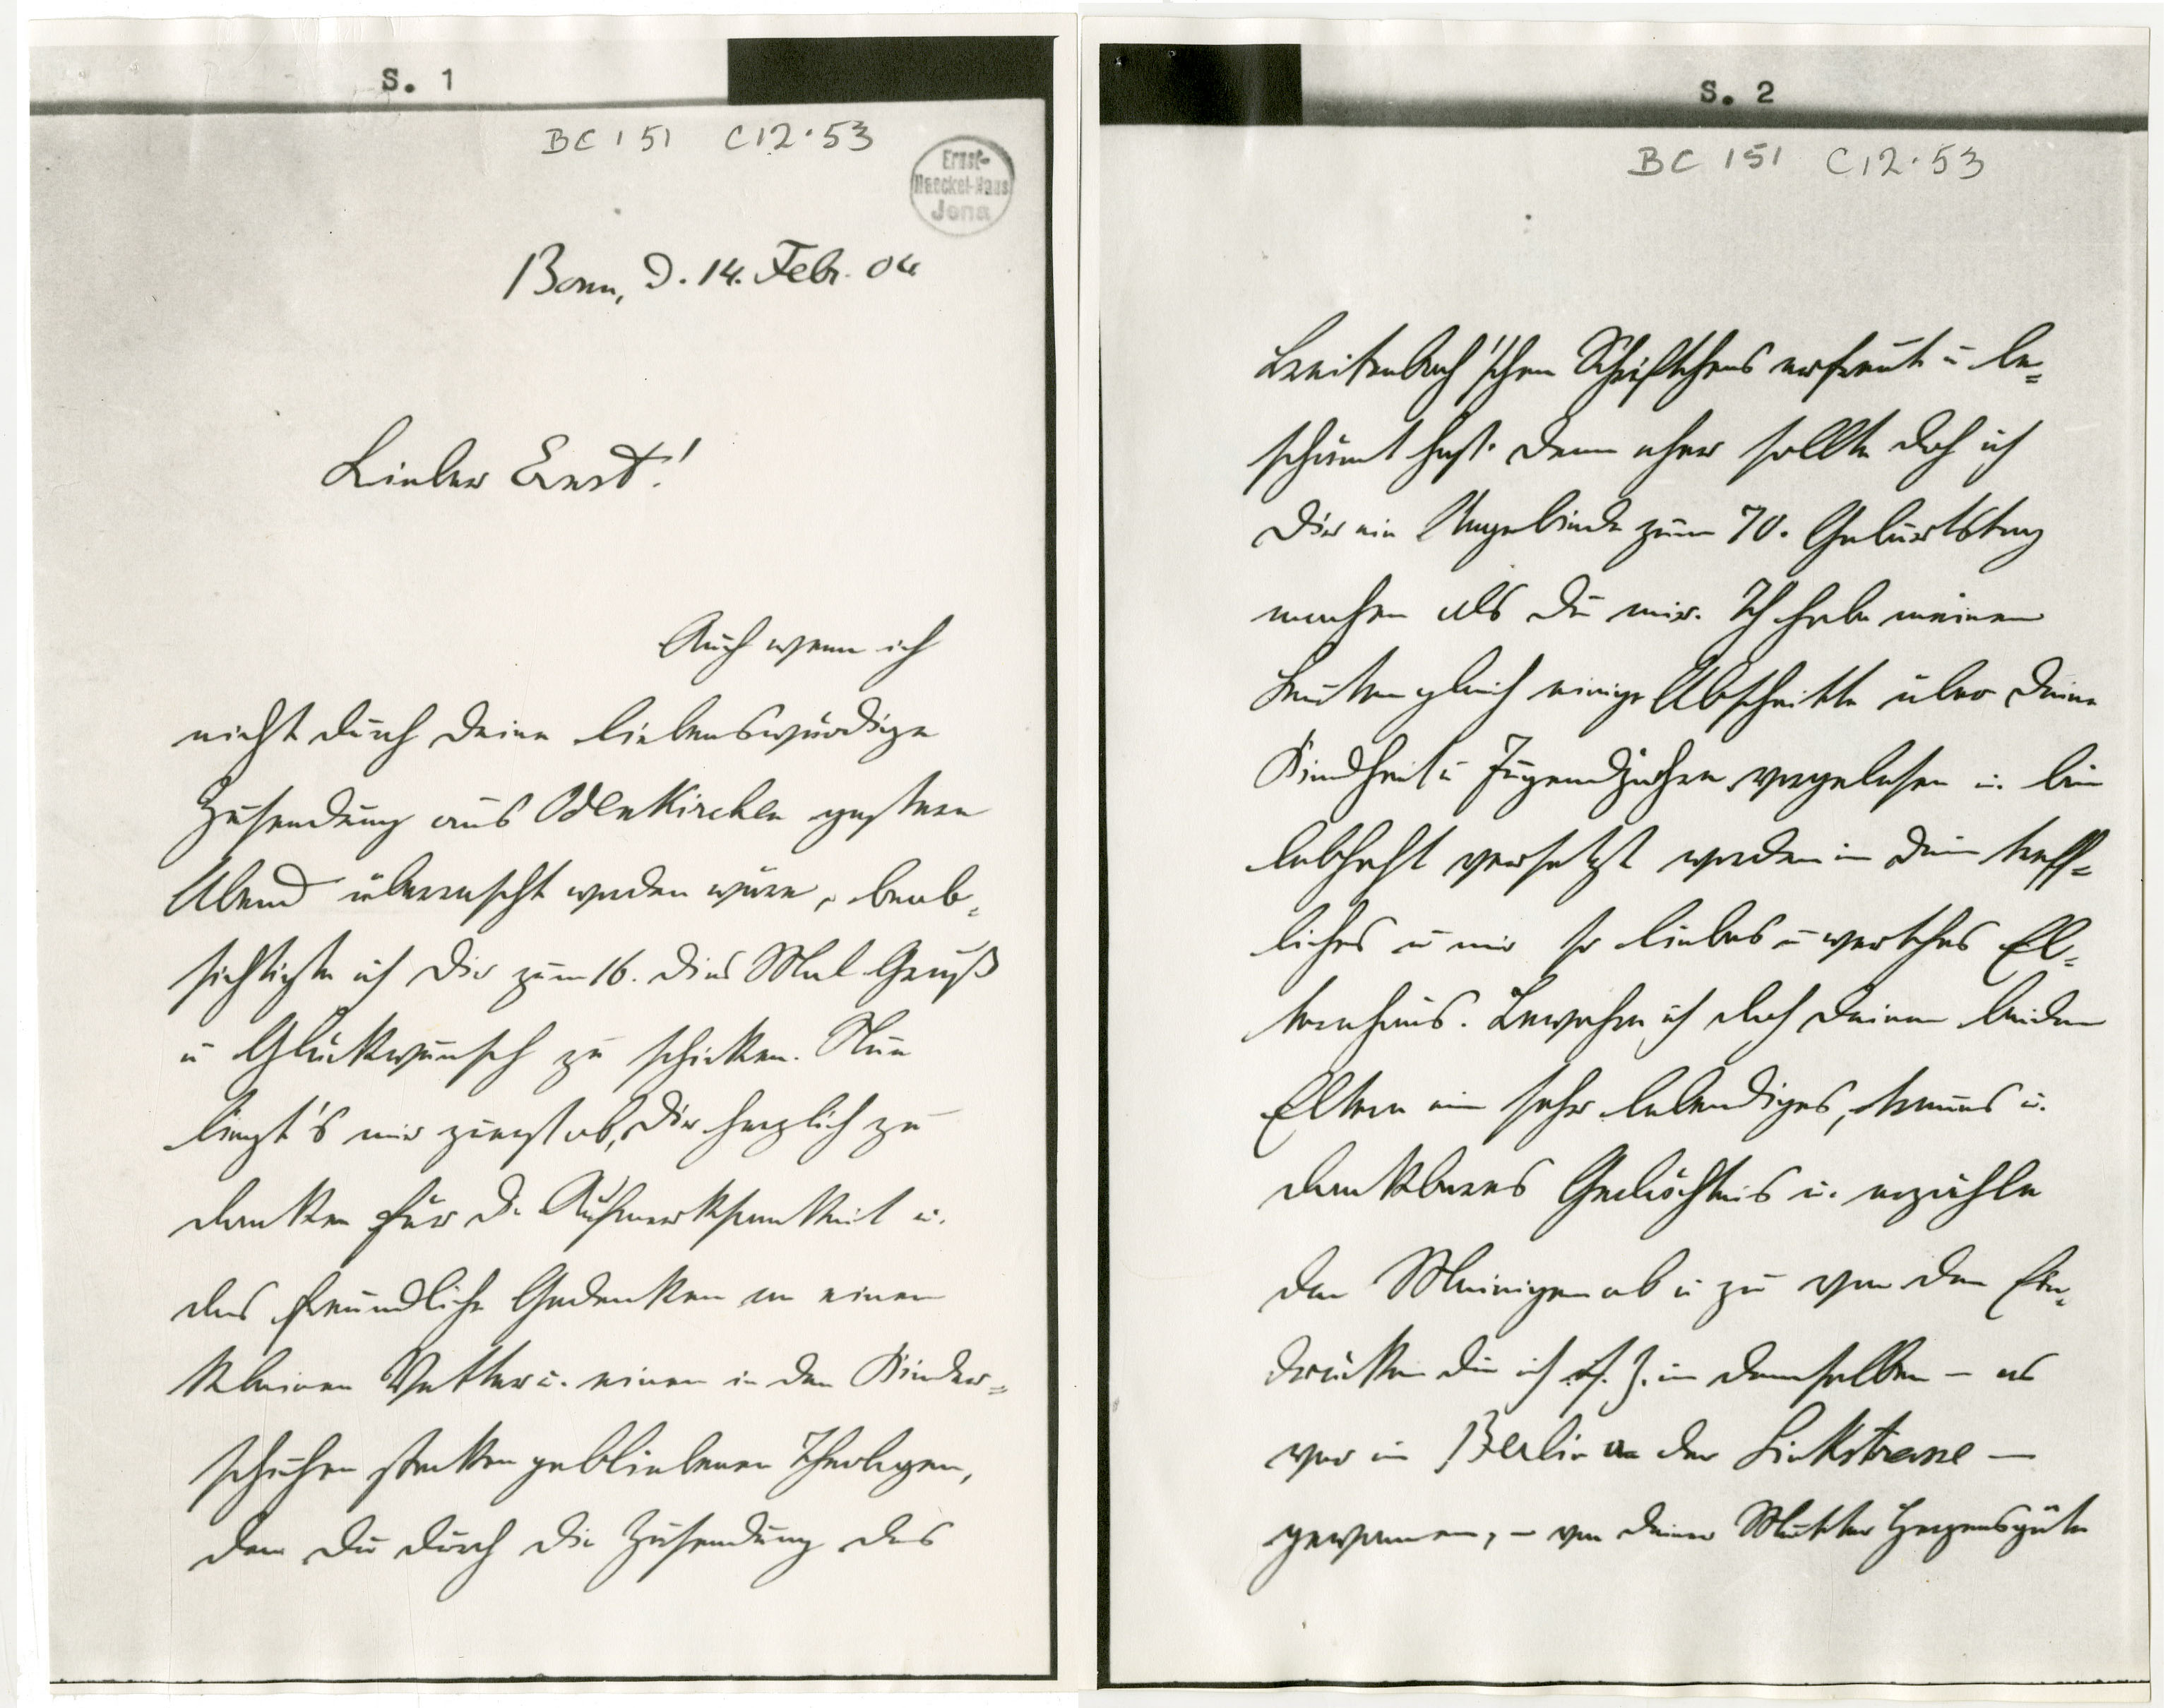 S. 1
BC 151 C12.53
Ernst-
Haeckel-Haus
Jena
Bonn, d. 14. Febr. 04
Lieber Ernst!
Auch wenn ich
nicht durch Deine liebenswürdige
Zusendung aus Odenkirchen gestern
Abend überrascht worden wäre, beab-
sichtigte ich Dir zum 16. dies Mal Gruß
u Glückwunsch zu schicken. Nun
liegt's mir zuerst ob, Dir herzlich zu
danken für d. Aufmerksamkeit u.
das freundliche Gedenken an einen
kleinen Vetter u. einen in den Kinder-
schuhen stecken gebliebenen Theologen,
den Du durch die Zusendung des
S. 2
BC 151 C12.53
Breitenbach'schen Schriftchens erfreut u be-
schämt hast. Denn eher sollte doch ich
Dir ein Angebinde zum 70. Geburtstag
machen als Du mir. Ich habe meinen
Leuten gleich einige Abschnitte über Deine
Kindheit u Jugendjahre vorgelesen u. bin
lebhaft versetzt worden in Dein treff-
liches u mir so liebes u werthes El-
ternhaus. Bewahre ich doch Deinen beiden
Eltern ein sehr lebendiges, treues u.
dankbares Gedächtnis u. erzähle
den Meinigen ab u zu von den Ein-
drücken die ich s. Z. in demselben – es
war in Berlin an der Linkstrasse –
gewonnen, – von Deiner Mutter Herzensgüte